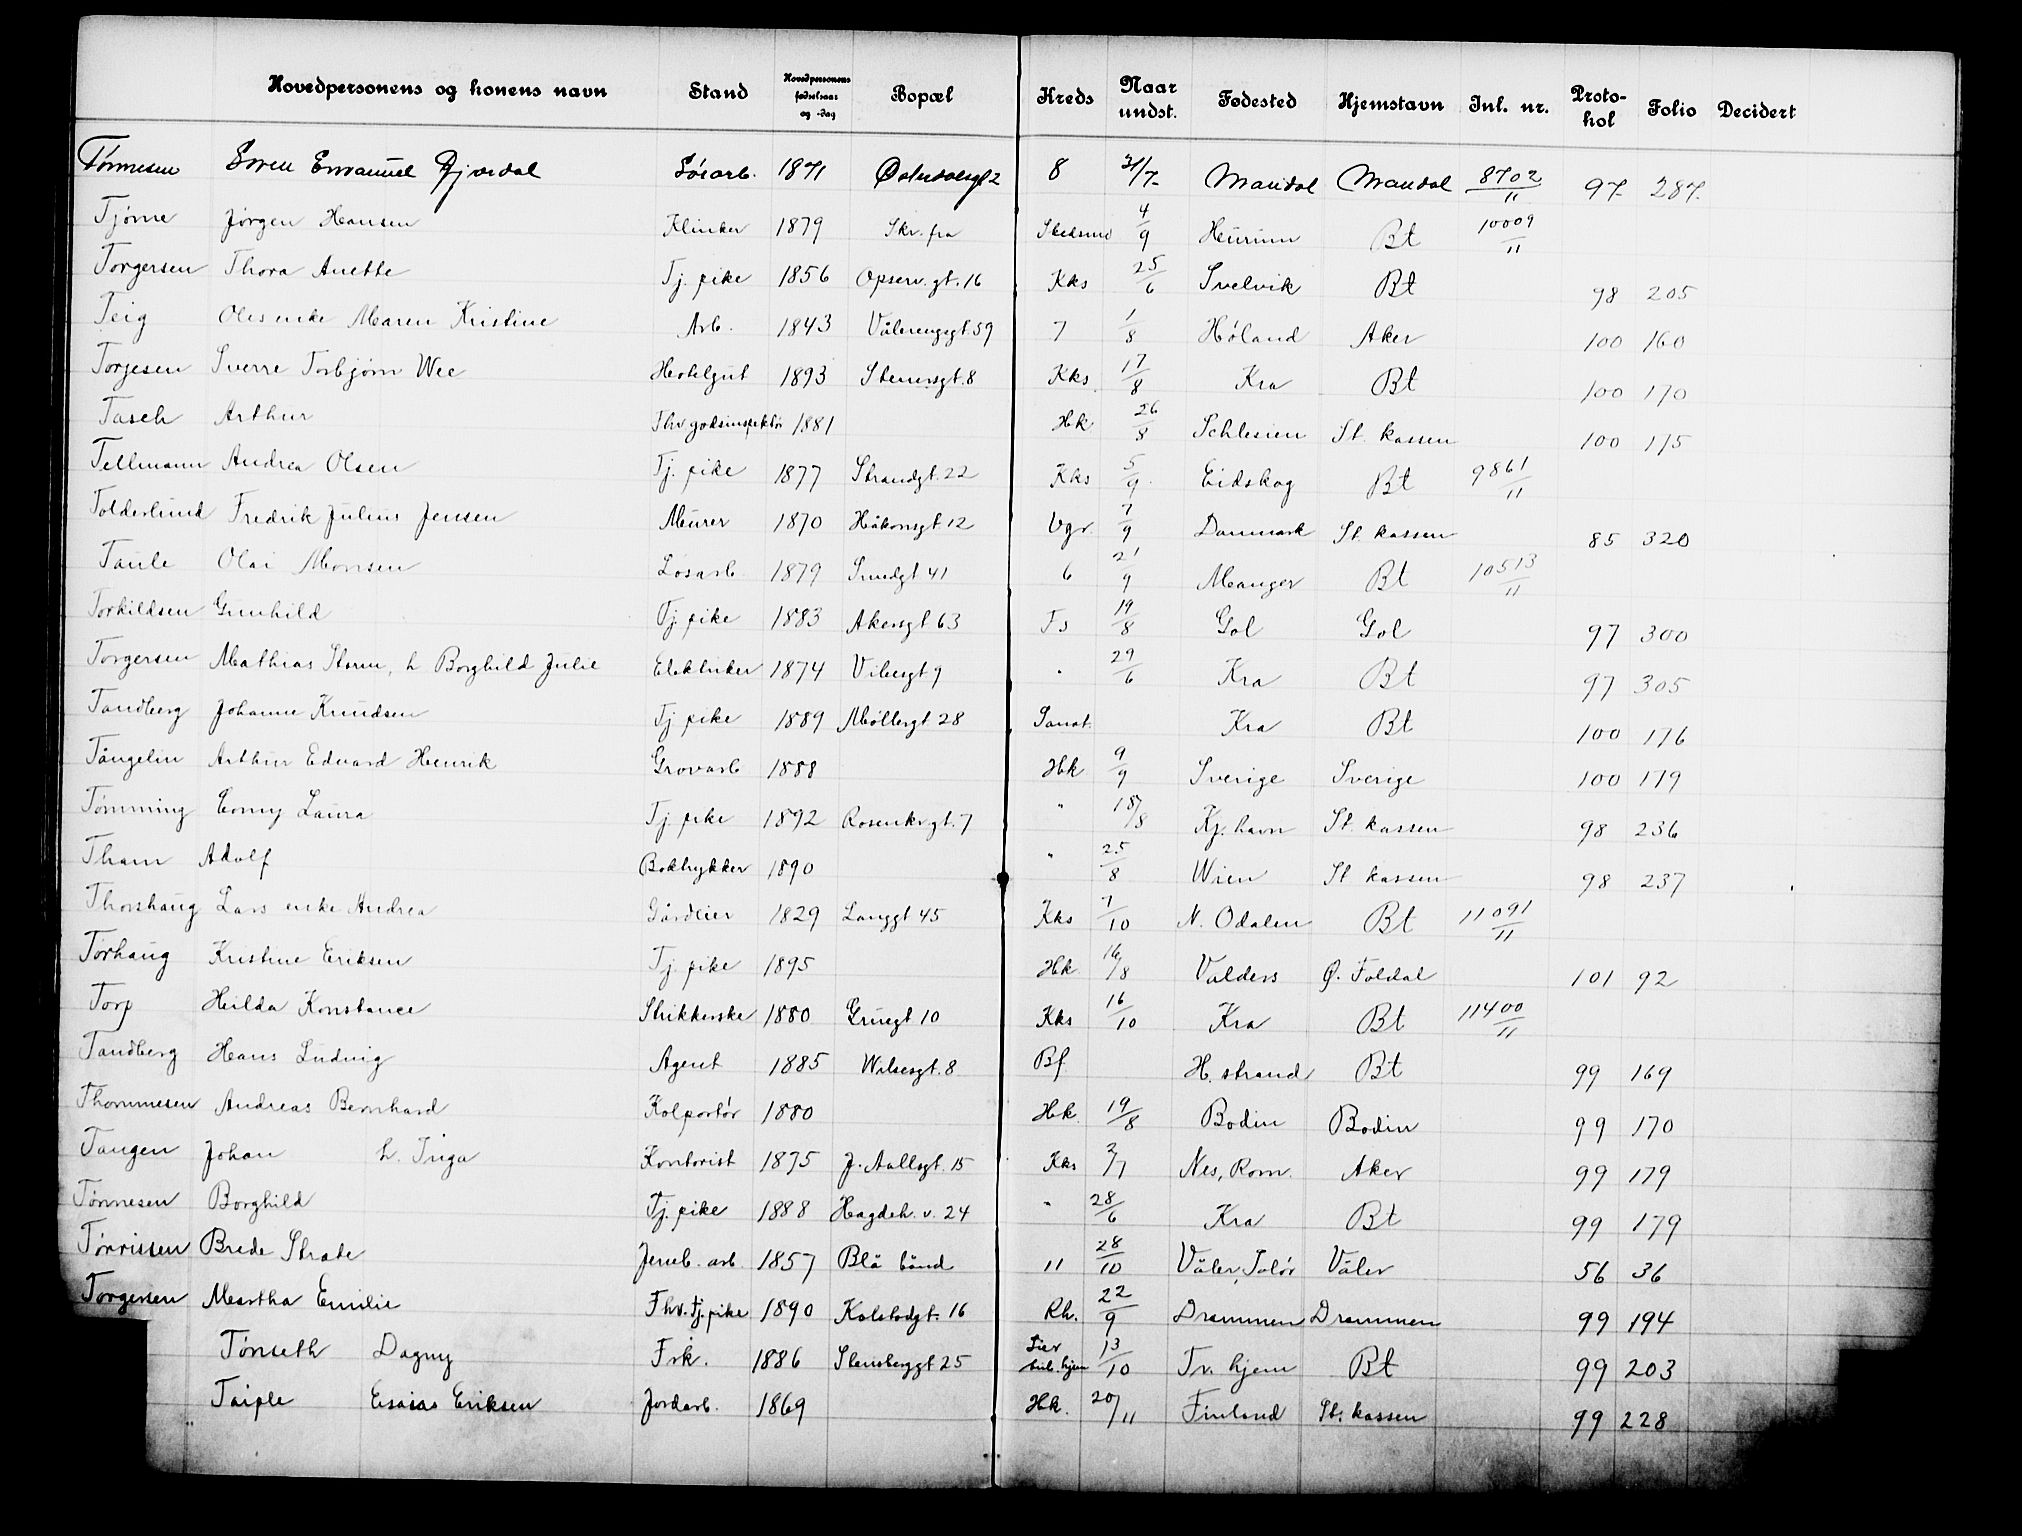 Hovedpersonens og konens navn Stand Hovedpersonens fødselsaar og -dag Bopæl Kreds Naar undst. Fødested Hjemstavn Inl. nr. Protokol Folio Decidert
Tønnesen Soren Emanuel Gjordal Løsarb. 1871 8 21/7 Mandal Mandal 8702/11 97 287.
Tjøme Jørgen Hansen Klinker 1879 Skr. fra Skedsmo 4/9 Hurum Bt 10009/11
Torgersen Thora Anette Tj. pike 1856 Opserv. gt. 16 Kks 25/6 Svelvik Bt 98 205
Teig Oles enke Maren Kristine Arb. 1843 Vålerenggt. 59 7 1/8 Høland Aker 100 160
Torjesen Sverre Torbjørn Wee Hotelgut 1893 Stenersgt. 8 Kks 17/8 Kra Bt 100 170
Tasch Arthur Fhv godsinspektør 1881 Hk 26/8 Schlesien St. kassen 100 175
Tellmann Andrea Olsen Tj. pike 1877 Strandgt. 22 Kks 5/9 Eidskog Bt 9861/11
Tolderlund Fredrik Julius Jensen Murer 1870 Håkonsgt 12 Vgr. 7/9 Danmark St. kassen 85 320
Taule Olai Monsen Løsarb. 1879 Sundgt 41 6 21/9 Manger Bt 10513/11
Torkildsen Gunhild Tj. pike 1883 Akersgt 63 Fs 19/8 Gol Gol 97 300
Torgersen Mathias Storm, h Borghild Julie Elektriker 1874 Vibesgt 9 " 29/6 Kra Bt 97 305
Tandberg Johanne Knudsen Tj pike 1889 Møllergt 28 Sanat. Kra Bt 100 176
Tångelin Arthur Edvard Henrik Grovarb 1888 Hk 9/9 Sverige Sverige 100 179
Tømming Conny Laura Tj. pike 1892 Rosenkr. gt. 7 " 18/8 Kj. havn St. kassen 98 236
Tham Adolf Boktrykker 1890 " 25/8 Wien St kassen 98 237
Thorshaug Lars enke Andrea Gårdeier 1829 Langgt 45 Kks 7/10 N. Odalen Bt 11091/11
Torhaug Kristine Eriksen Tj. pike 1895 Hk 16/8 Valders Ø. Foldal 101 92
Torp Hilda Konstance Strikkerske 1880 Gruegt 10 Kks 16/10 Kra Bt 11400/11
Tandberg Hans Ludvig Agent 1885 Wilsesgt. 8 Bf H. strand Bt 99 169
Thommesen Andreas Bernhard Kolportør 1880 Hk 19/8 Bodin Bodin 99 170
Tangen Johan h. Inga Kontorist 1875 J. Aallsgt. 15 Kks 3/7 Nes, Rom. Aker 99 179
Tønnesen Borghild Tj. pike 1888 Hagdeh. v. 24 " 28/6 Kra Bt 99 179
Tørrissen Brede Strate Jernb. arb. 1857 Blå bånd 11 28/10 Våler, Solør Våler 56 36
Torgersen Martha Emilie Fhv. Tj. pike 1890 Kolstodgt. 16 Rh. 22/9 Drammen Drammen 99 194
Tønseth Dagny Frk. 1886 Stensberggt 25 Lier tub. hjem 13/10 Tr. hjem Bt 99 203
Taiple Esaias Eriksen Jordarb. 1869 Hk. 20/11 Finland St. kassen 99 228